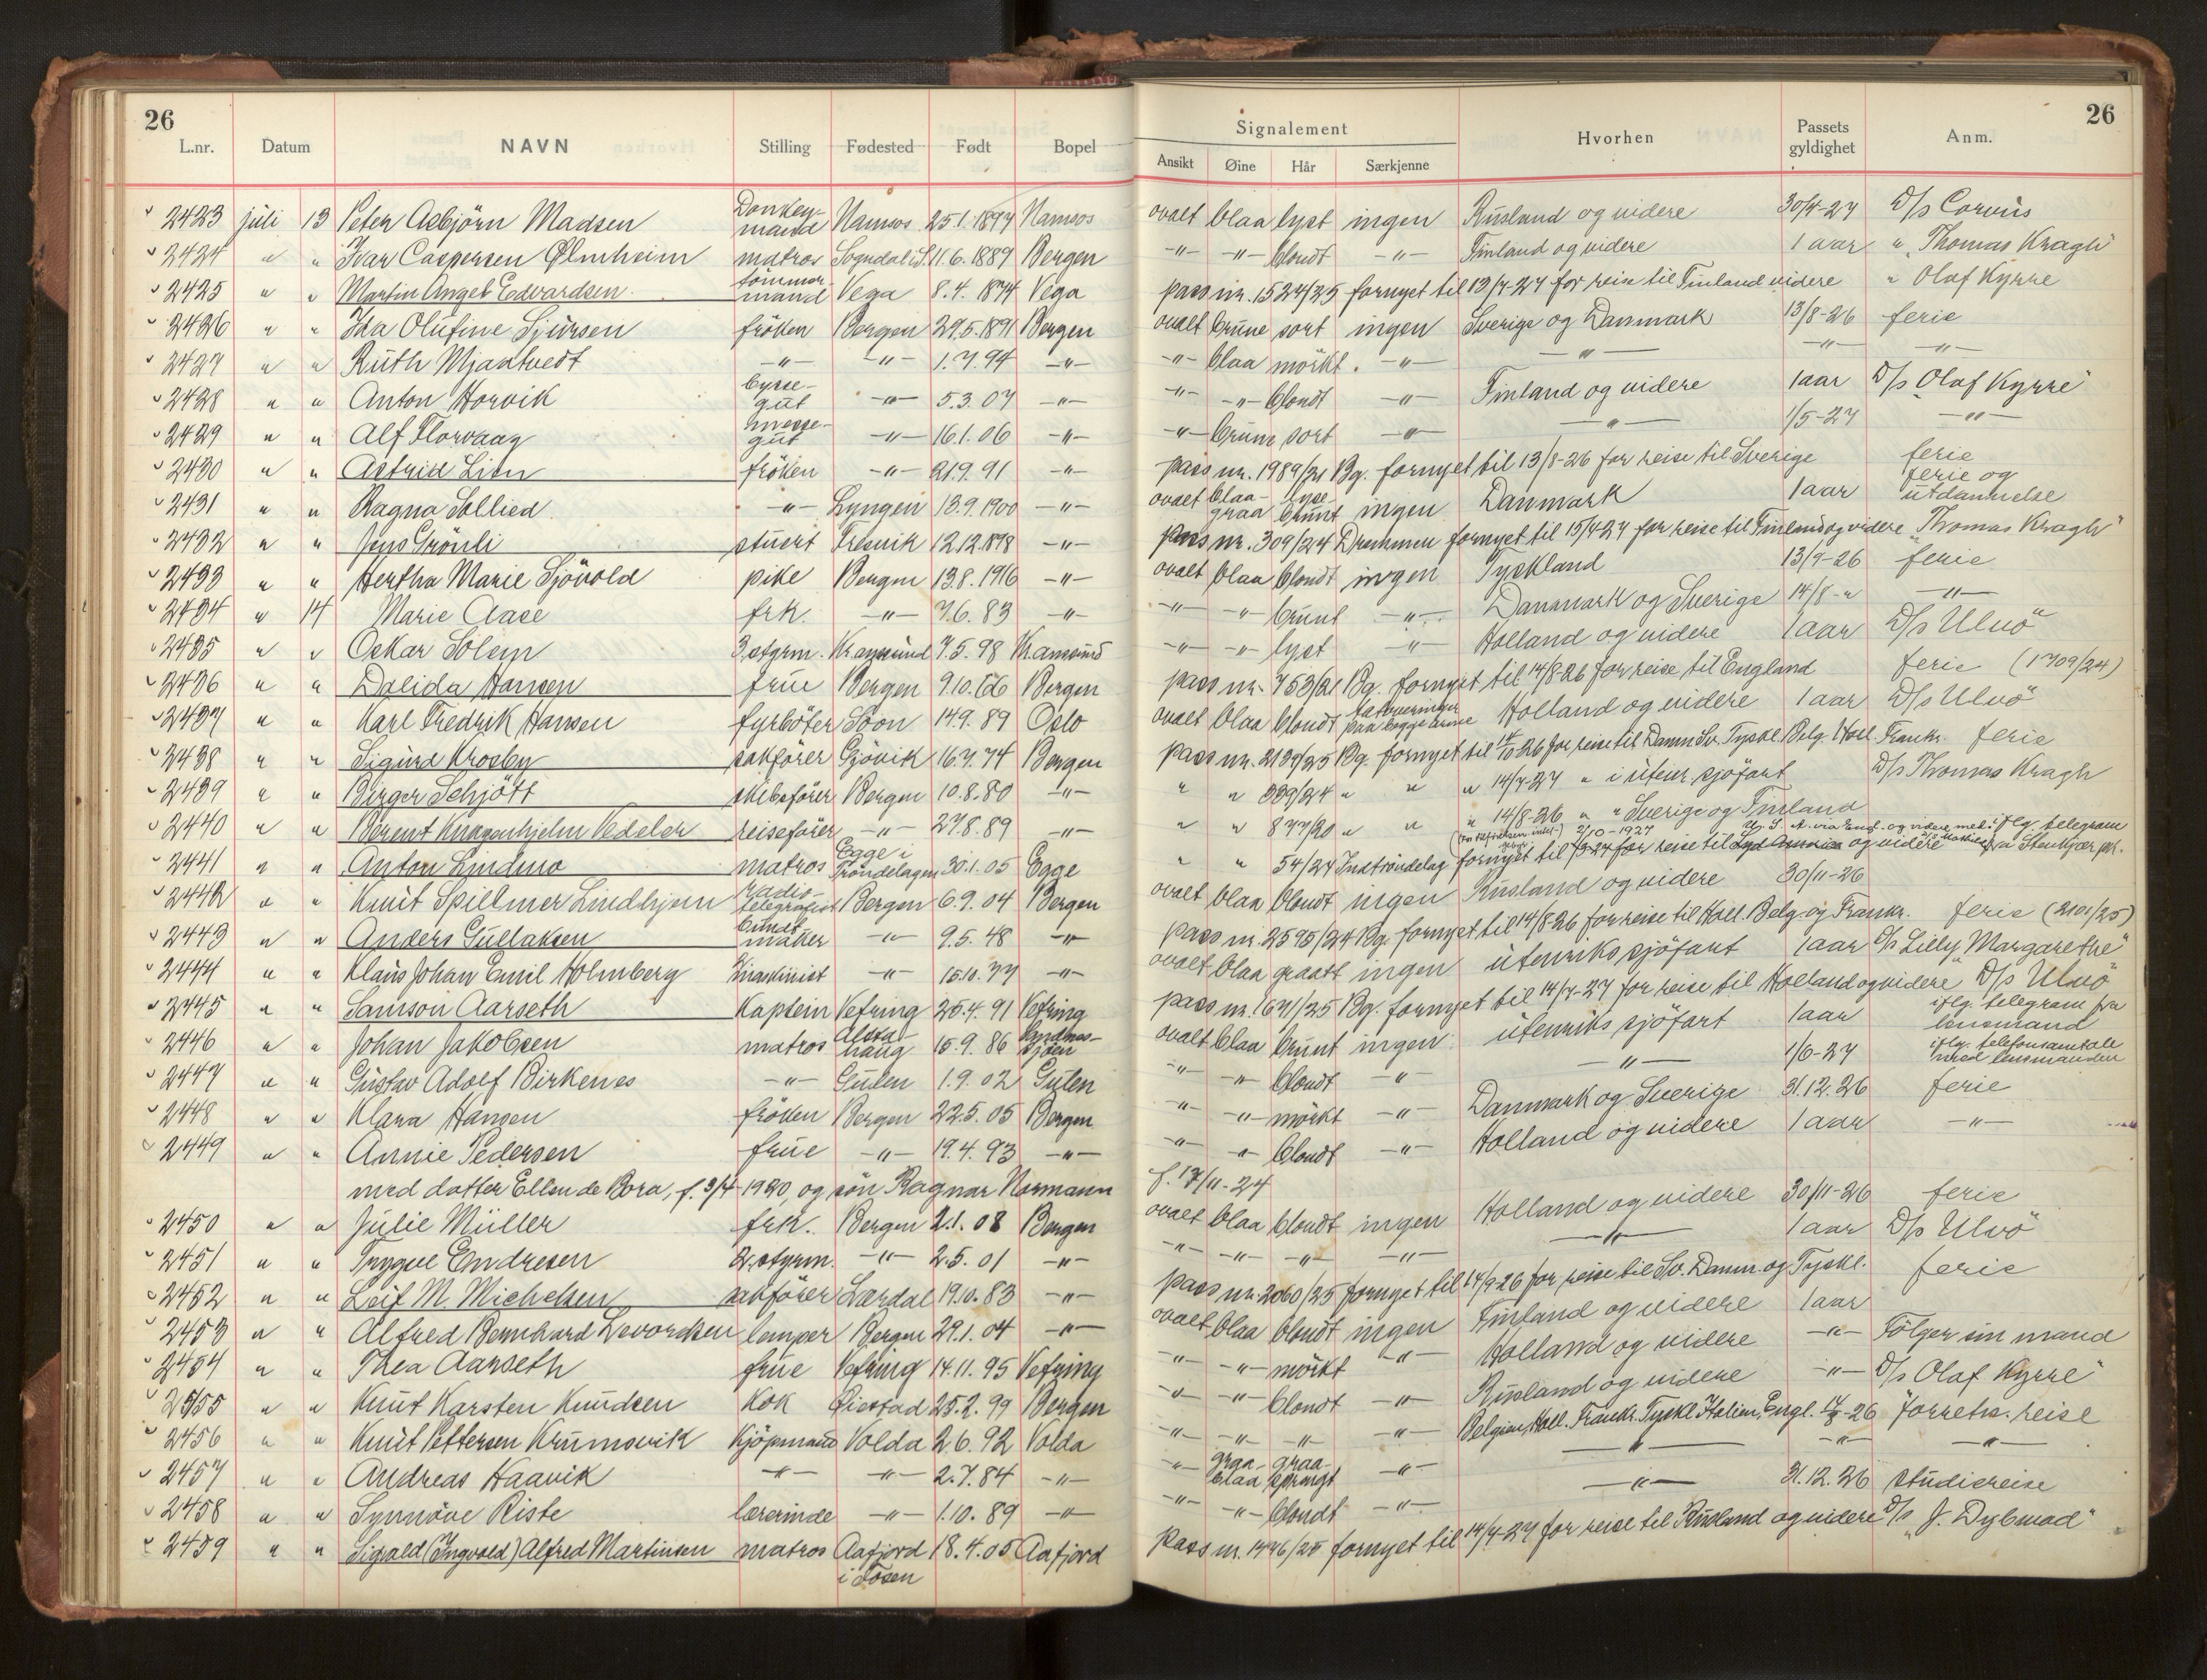 26
L.nr. Datum NAVN Stilling Fødested Født Bopel
Signalement
Ansikt Øine Hår Særkjenne
Hvorhen Passets gyldighet Anm.
26
2423 juli 13 Peter Asbjörn Madsen Donkeymand Namsos 25.1.1897 Namsos ovalt blaa lyst ingen Rusland og videre 30/4-27 D/s Corvus
2424 " " Ivar Caspersen Ølmheim matros Sogndal i S. 11.6.1889 Bergen -"- -"- blondt -"- Finland og videre 1 aar " "Thomas Kragh"
2425 " " Martin Angel Edvardsen tömmermand Vega 8.4.1874 Vega pass nr. 1524/25 fornyet til 13/7-27 for reise til Finland videre " Olaf Kyrre
2426 " " Ida Olufine Sjursen fröken Bergen 29.5.1891 Bergen ovalt brune sort ingen Sverige og Danmark 13/8-26 ferie
2427 " " Ruth Mjaatvedt -"- -"- 1.7.94 -"- -"- blaa mörkt. -"- -"- -"- -"-
2428 " " Anton Horvik byssegut -"- 5.3.07 -"- -"- -"- blondt -"- Finland og videre 1 aar D/s "Olaf Kyrre"
2429 " " Alf Florvaag messegut -"- 16.1.06 -"- -"- brune sort -"- -"- 1/5-27 -"-
2430 " " Astrid Lien fröken -"- 21.9.91 -"- pass nr. 1989/21 Bg. fornyet til 13/8-26 for reise til Sverige ferie
2431 " " Ragna Sollied -"- Lyngen 13.9.1900 -"- ovalt blaagraa lysebrunt ingen Danmark 1 aar ferie og utdannelse
2432 " " Jens Grönli stuert 12.12.1898 -"- pass nr. 309/24 Drammen fornyet til 15/4-27 for reise til Finland og videre "Thomas Kragh"
2433 " " Hertha Marie Sjövold pike Bergen 13.8.1916 -"- ovalt blaa blondt ingen Tyskland 13/9-26 ferie
2434 " 14 Marie Aase frk. -"- 7.6.83 -"- -"- -"- brunt -"- Danmark og Sverige 14/8-" -"-
2435 " " Oskar Solem 3. styrm. Kr.ansund 7.5.98 Kr.ansund -"- -"- lyst -"- Holland og videre 1 aar D/s Ulvö"
2436 " " Dalida Hansen frue Bergen 9.10.66 Bergen pass nr. 753/21 Bg. fornyet til 14/8-26 for reise til England ferie (1709/24)
2437 " " Karl Fredrik Hansen fyrböter Soon 14.9.89 Oslo ovalt blaa blondt tatoveringer paa begge arme Holland og videre 1 aar D/s Ulvö"
2438 " " Sigurd Krosby sakförer Gjövik 16.7.74 Bergen pass nr. 2139/25 Bg. fornyet til 14/10-26 for reise til Danm Sv. Tyskl. Belg. Holl. Frankr. ferie
2439 " " Birger Schjött skibsförer Bergen 10.8.80 -"- " " 339/24 " " " 14/7-27 " i utenr. sjöfart D/s Thomas Kragh
2440 " " Berent Knagenhjelm Vedeler reiseförer -"- 27.8.89 -"- " " 877/20 " " " 14/8-26 " " Sverige og Finland
2441 " " Anton Lindmo matros Egge i Tröndelagen 30.1.05 Egge " " 54/24 Indtröndelag fornyet til 2/10-1927 for reise til Syd Amerika og videre iflg. telegram fra Stenkjær pk.
2442 " " Knut Spillmer Lindhjem radiotelegrafist Bergen 6.9.04 Bergen ovalt blaa blondt ingen Rusland og videre 30/11-26
2443 " " Anders Gullaksen buntmaker -"- 9.5.48 -"- pass nr. 2595/24 Bg. fornyet til 14/8-26 for reise til Holl. Belg. og Frankr. ferie (2101/25)
2444 " " Klaus Johan Emil Holmberg maskinist -"- 15.10.77 -"- ovalt blaa graatt ingen utenriks sjöfart 1 aar D/s Lilly Margarethe"
2445 " " Samson Aarseth Kaptein Vefring 20.4.91 Vefring pass nr. 1671/25 Bg. fornyet til 14/7-27 for reise til Holland og videre D/s Ulvö"
2446 " " Johan Jakobsen matros Alstahaug 15.9.86 Sandnessjöen ovalt blaa brunt ingen utenriks sjöfart 1 aar iflg. telegram fra lensmand
2447 " " Gustav Adolf Birkenes -"- Gulen 1.9.02 Gulen -"- -"- blondt -"- -"- 1/6-27 iflg. telefonsamtale med lensmanden
2448 " " Klara Hansen fröken Bergen 22.5.05 Bergen -"- -"- mörkt -"- Danmark og Sverige 31.12.26 ferie
2449 " " Annie Pedersen frue -"- 19.4.93 -"- -"- -"- blondt -"- Holland og videre 1 aar -"-
med datter Ellen de Bora, f. 3/4-1920, og sön Ragnar Normann f. 17/11-24
2450 " " Julie Müller frk. Bergen 2.1.08 Bergen ovalt blaa blondt ingen Holland og videre 30/11-26 ferie
2451 " " Trygve Endresen 2. styrm. -"- 2.5.01 -"- -"- -"- -"- -"- -"- 1 aar D/s Ulvö"
2452 " " Leif M. Michelsen sakförer Lærdal 19.10.83 -"- pass nr. 2060/25 fornyet til 14/9-26 for reise til Sv. Danm. og Tyskl. ferie
2453 " " Alfred Bernhard Levordsen lemper Bergen 29.1.04 -"- ovalt blaa blondt ingen Finland og videre 1 aar
2454 " " Thea Aarseth frue Vefring 14.11.95 Vefring -"- -"- mörkt -"- Holland og videre -"- Fölger sin mand
2455 " " Knut Karsten Knudsen Kok Öiestad 25.2.99 Bergen -"- -"- blondt -"- Rusland og videre -"- D/s Olaf Kyrre"
2456 " " Knut Pettersen Krumsvik Kjöpmand Volda 2.6.92 Volda -"- -"- -"- -"- Belgien, Holl. Frankr. Tyskl. Italien, Engl. -26 forretn. reise
2457 " " Andreas Haavik -"- -"- 2.7.84 -"- -"- graablaa graasprengt -"- -"- -"- -"-
2458 " " Synnöve Riste lærerinde -"- 1.10.89 -"- -"- -"- blondt -"- -"- 31.12.26 studiereise
2459 " " Sigvald (Ingvald) Alfred Martinsen matros Aafjord i Fosen 18.4.05 Aafjord pass nr. fornyet til 14/7-27 for reise til Rusland og videre D/s "J. Dybwad"